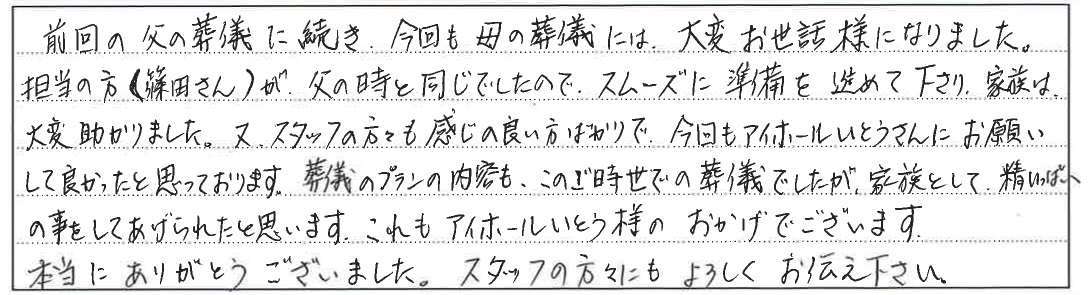 前回の父の葬儀に続き、今回も母の葬儀には、大変お世話様になりました。
担当の方(篠田さん)が、父の時と同じでしたので、スムーズに準備を進めて下さり、家族は、
大変助かりました。又、スタッフの方々も感じの良い方ばかりで、今回もアイホールいとうさんにお願い
して良かったと思っております。葬儀のプランの内容も、このご時世での葬儀でしたが、家族として、精いっぱい
の事をしてあげられたと思います。これもアイホールいとう様のおかげでございます。
本当にありがとうございました。スタッフの方々にもよろしくお伝え下さい。